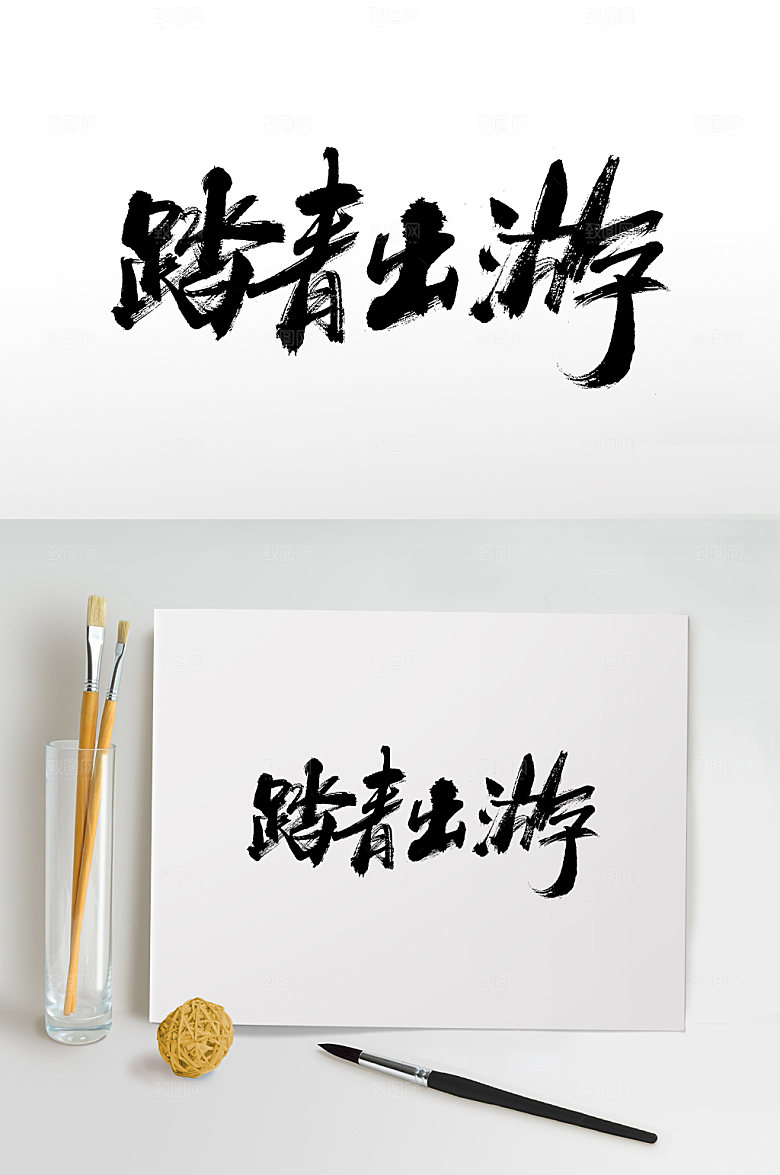 踏青出游
踏青出游